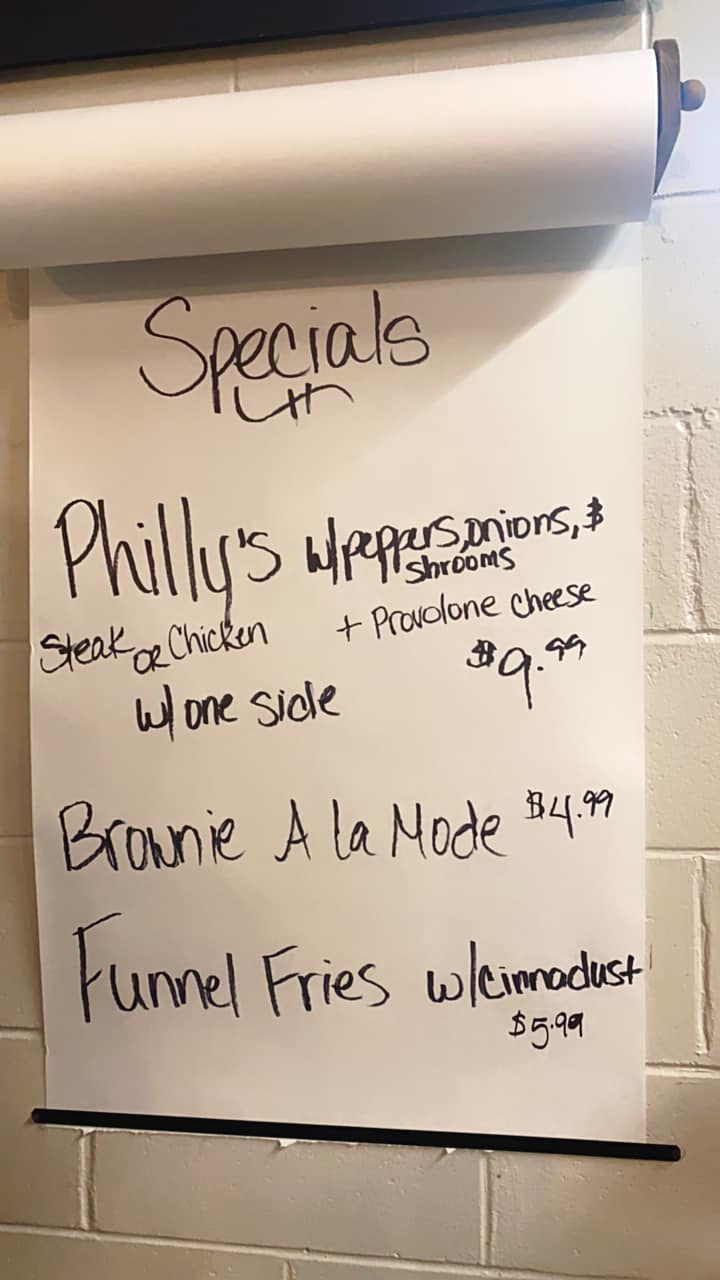 Specials
Philly's w/peppers, onions, &
shrooms
Steak or Chicken + Provolone cheese
w/ one side $9.99
Brownie A la Mode $4.99
Funnel Fries w/cinnadust
$5.99